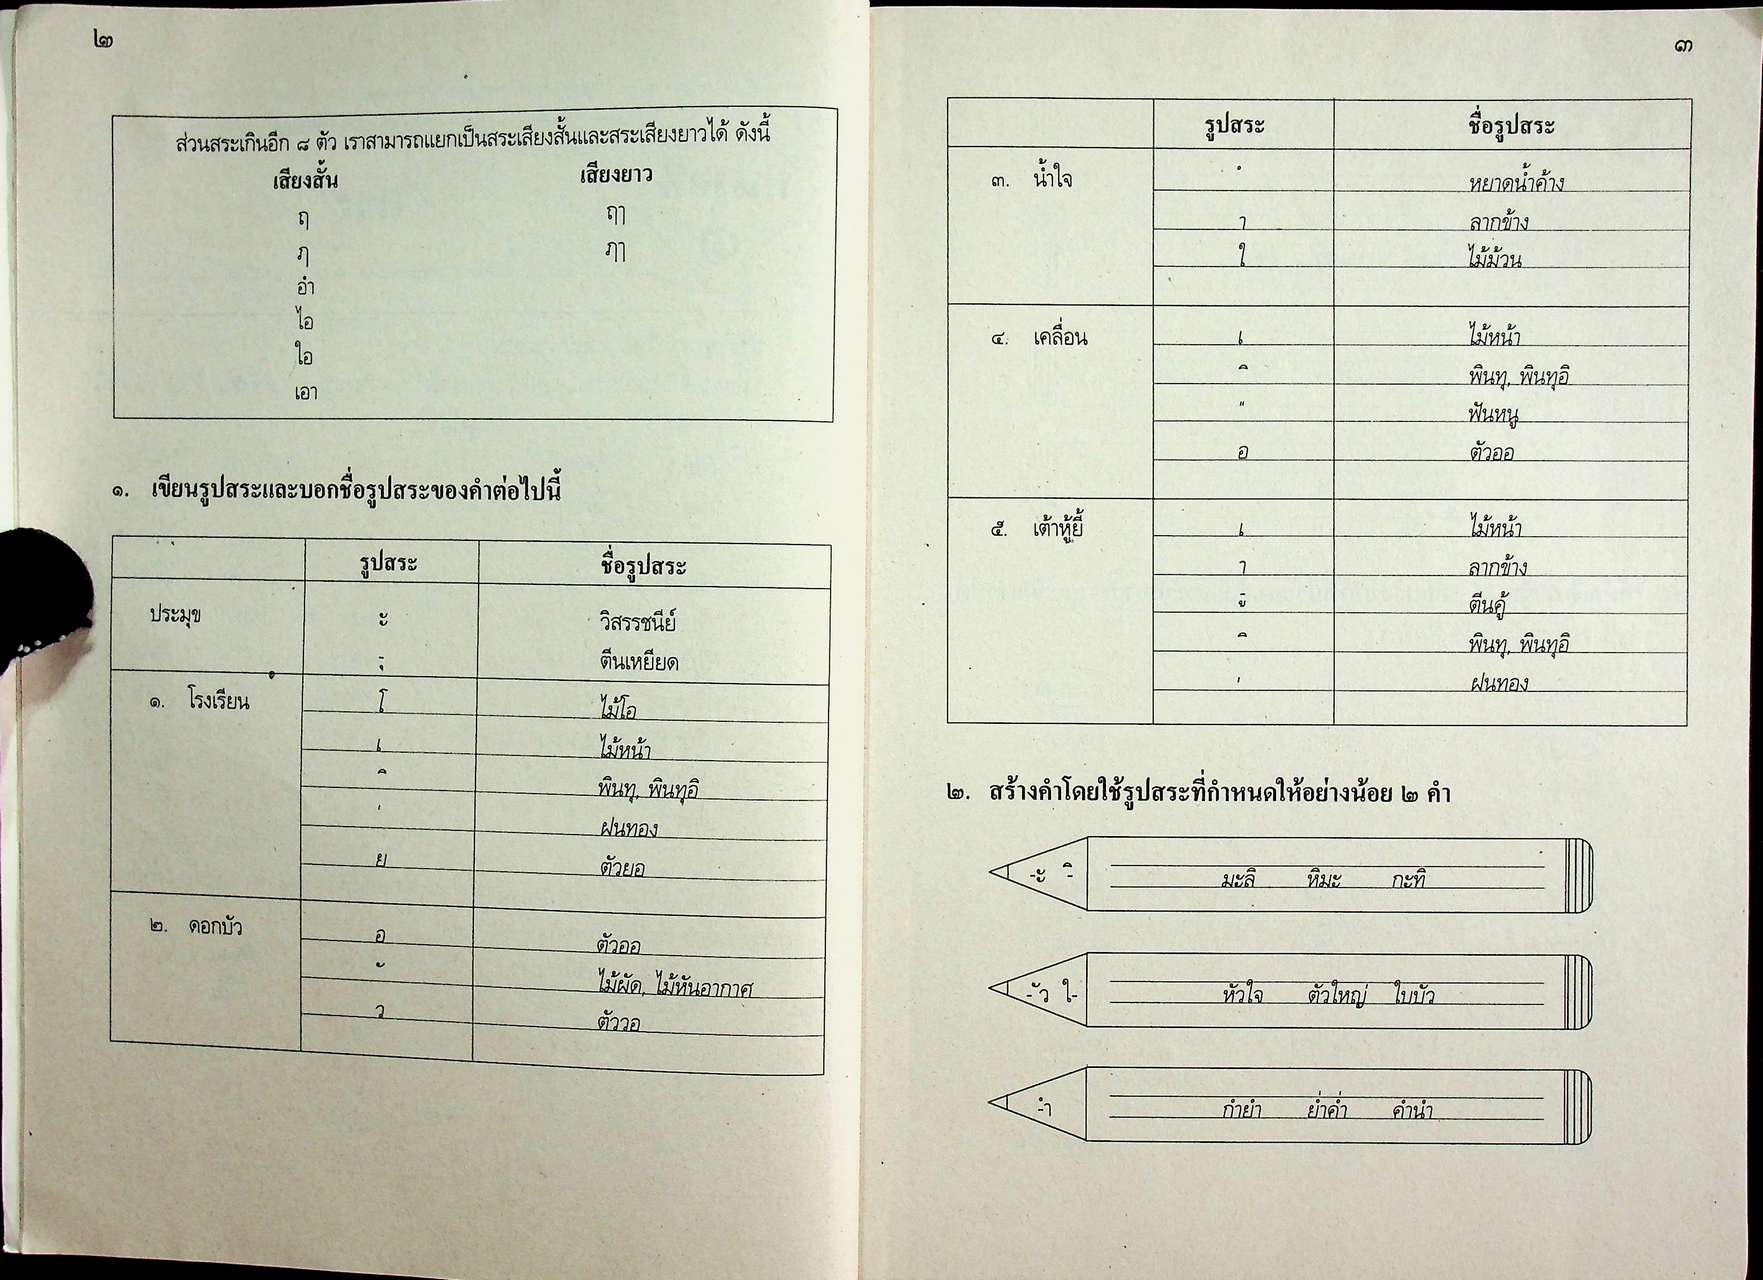 ๒
ส่วนสระเกินอีก ๘ ตัว เราสามารถแยกเป็นสระเสียงสั้นและสระเสียงยาวได้ ดังนี้
เสียงสั้น เสียงยาว
ฤ ฤๅ
ฦ ฦๅ
อำ
ไอ
ใอ
เอา
๑. เขียนรูปสระและบอกชื่อรูปสระของคำต่อไปนี้
รูปสระ ชื่อรูปสระ
ประมุข ะ วิสรรชนีย์
-ุ ตีนเหยียด
๑. โรงเรียน โ ไม้โอ
เ ไม้หน้า
ิ พินทุ, พินทุอิ
' ฝนทอง
ย ตัวยอ
๒. ดอกบัว อ ตัวออ
ั ไม้ผัด, ไม้หันอากาศ
ว ตัววอ
๓
รูปสระ ชื่อรูปสระ
๓. น้ำใจ ํ หยาดน้ำค้าง
า ลากข้าง
ใ ไม้ม้วน
๔. เคลื่อน เ ไม้หน้า
ิ พินทุ, พินทุอิ
" ฟันหนู
อ ตัวออ
๕. เต้าหู้ยี้ เ ไม้หน้า
า ลากข้าง
-ู ตีนคู้
ิ พินทุ, พินทุอิ
' ฝนทอง
๒. สร้างคำโดยใช้รูปสระที่กำหนดให้อย่างน้อย ๒ คำ
-ะ -ิ มะลิ หิมะ กะทิ
-ัว ใ- หัวใจ ตัวใหญ่ ใบบัว
-ำ กำยำ ย่ำค่ำ คำนำ